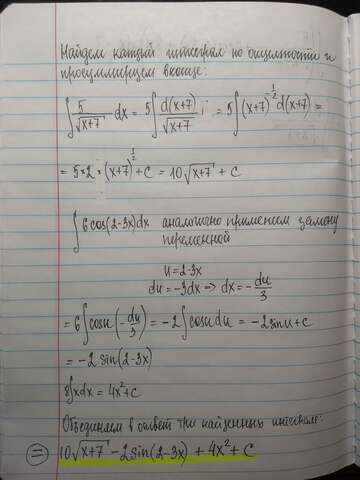 Найдем каждый интеграл по отдельности и
просуммируем вконце:
∫ 5/√(x+7) dx = 5∫ d(x+7)/√(x+7) = 5∫(x+7)^(-1/2) d(x+7) =
= 5*2*(x+7)^(1/2) + C = 10√(x+7) + C
∫6cos(2-3x)dx аналогично применяем замену
переменной
u = 2-3x
du = -3dx => dx = -du/3
= 6∫cosu(-du/3) = -2∫cosudu = -2sinu+C
= -2sin(2-3x)
8∫xdx = 4x²+C
Объединяем в ответ три найденных интеграла:
= 10√(x+7) - 2sin(2-3x) + 4x² + C